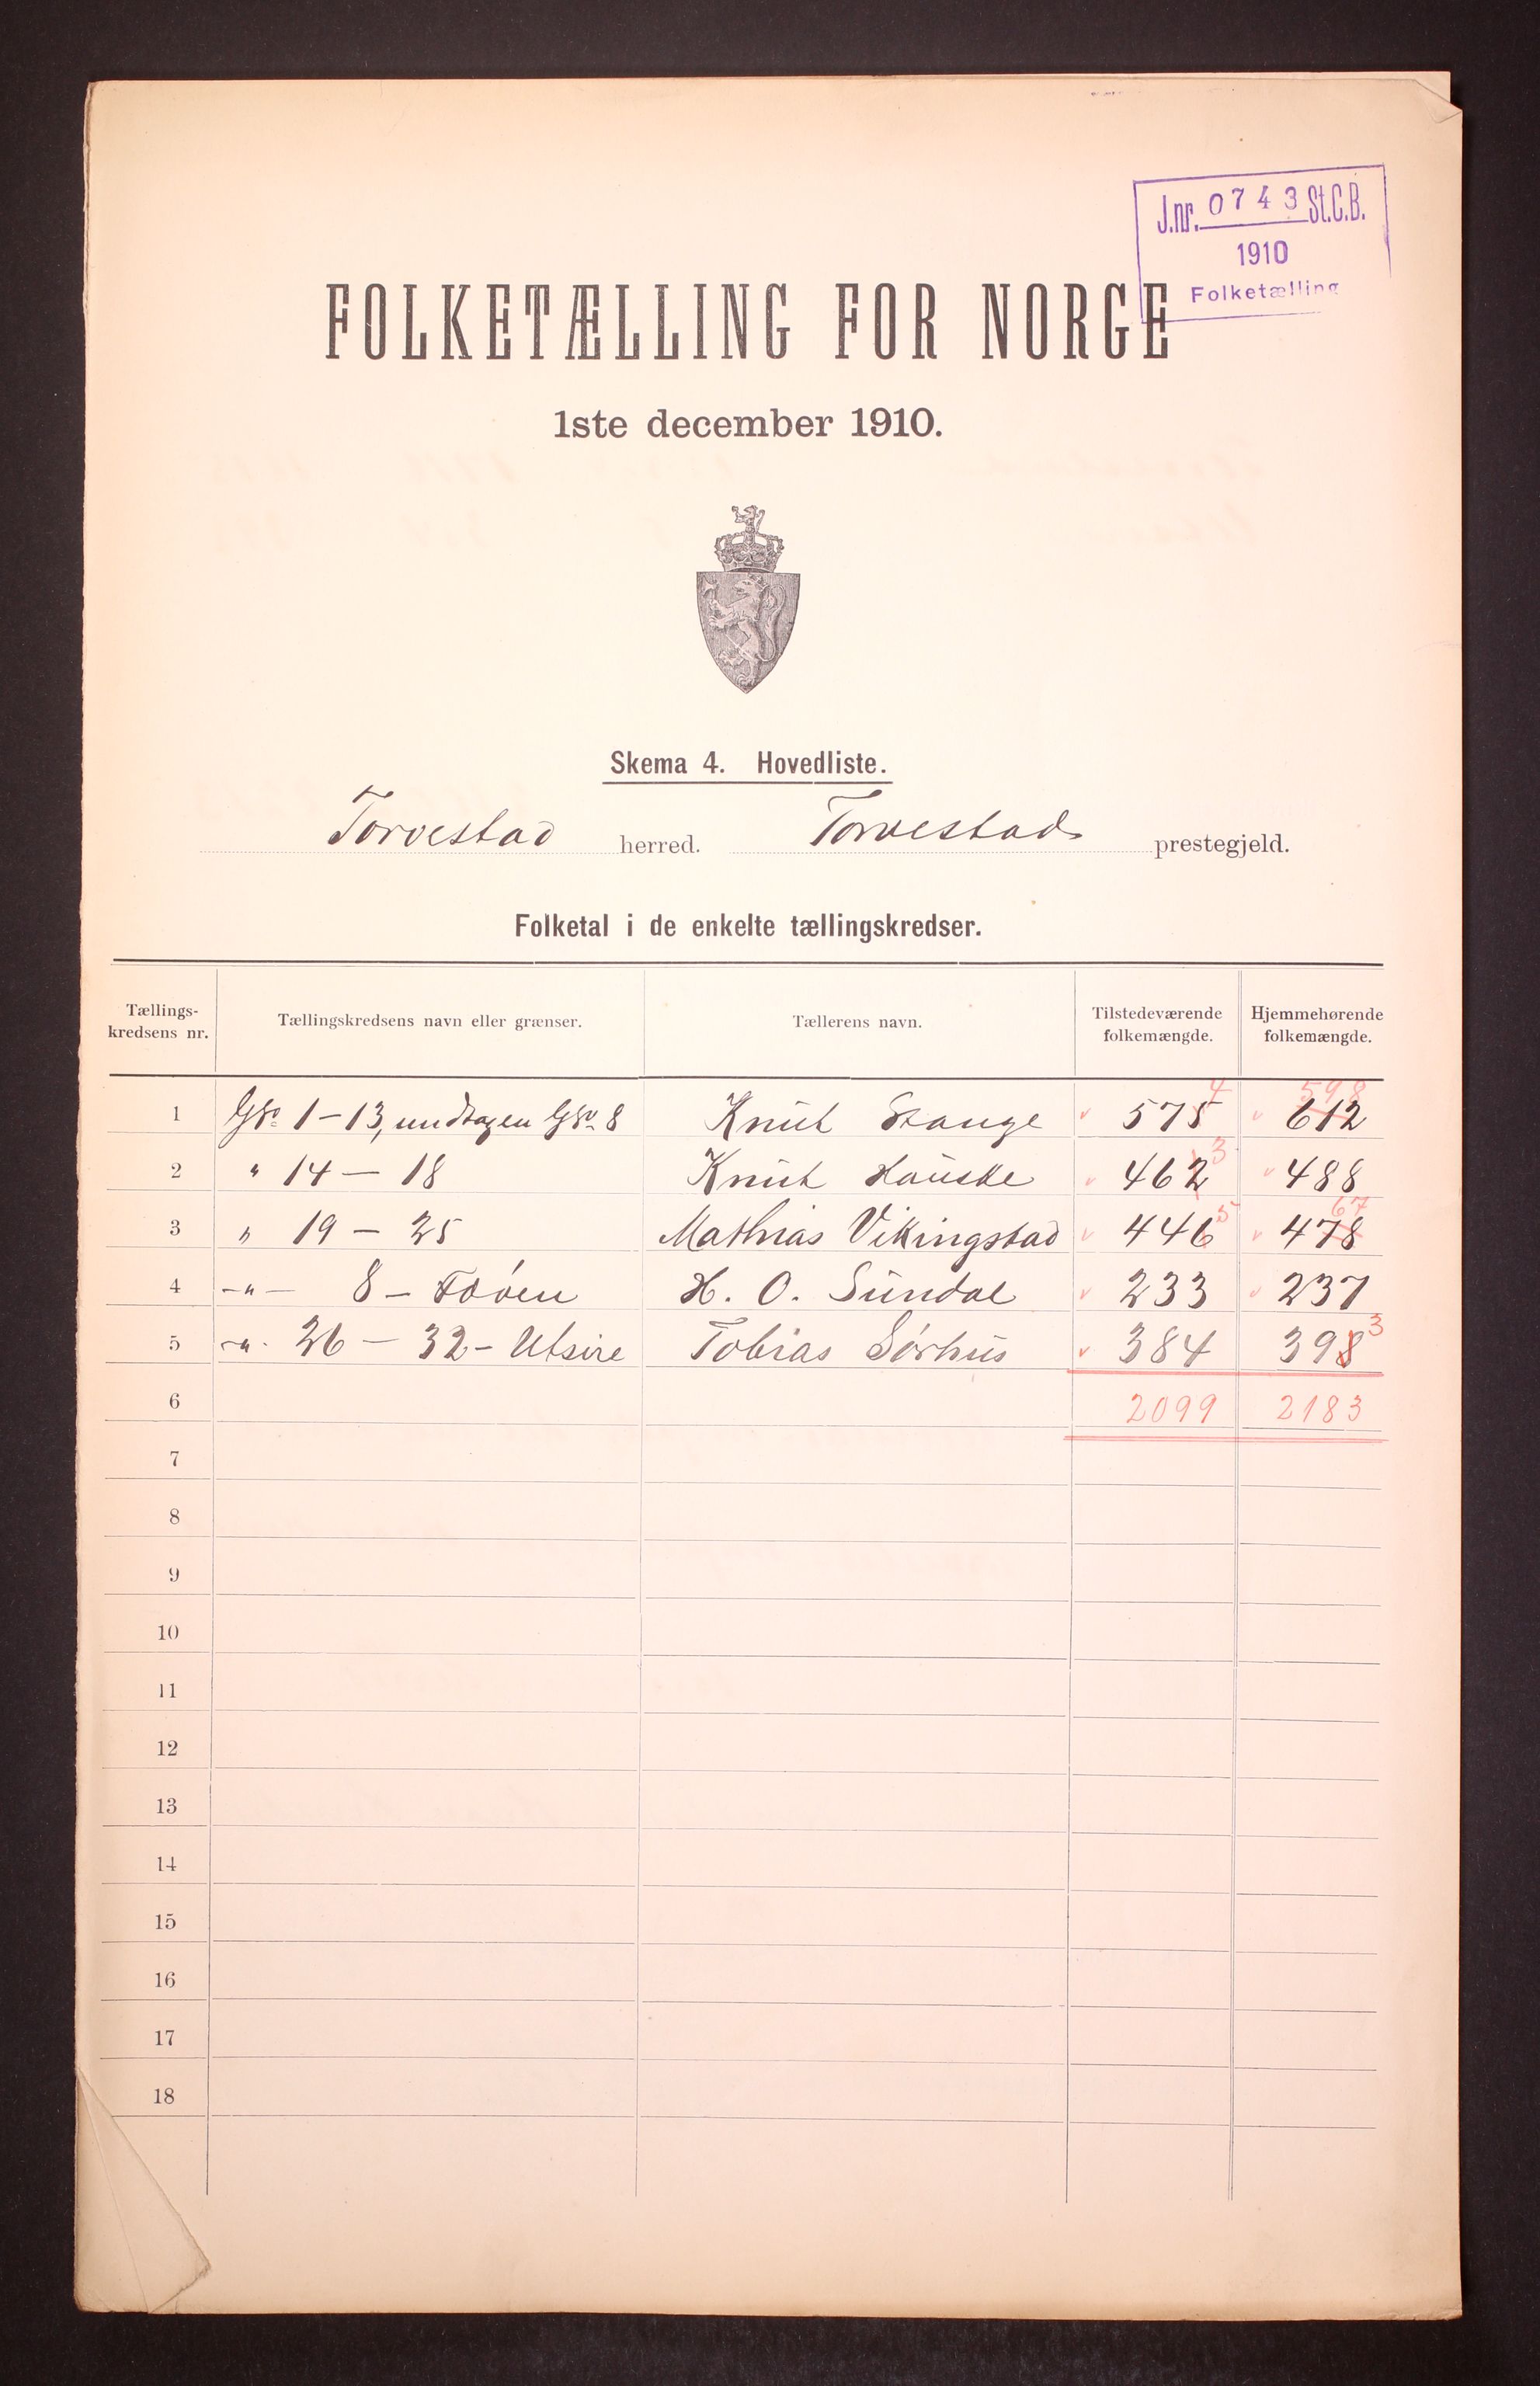 J.nr. 0743 St.C.B.
1910
Folketælling
FOLKETÆLLING FOR NORGE
1ste december 1910.
Skema 4. Hovedliste.
Torvestad herred. Torvestad prestegjeld.
Folketal i de enkelte tællingskredser.
Tællings-kredsens nr. Tællingskredsens navn eller grænser. Tællerens navn. Tilstedeværende folkemængde. Hjemmehørende folkemængde.
4 598
1 Gno 1-13, undtagen Gno 8 Knut Stange 575 612
3
2 " 14 - 18 Knut Hauske 462 488
5 67
3 " 19 - 25 Mathias Vikingstad 446 478
4 -"- 8 - Føøen H. O. Sundal 233 237
5 -"- 26 - 32 - Utsire Tobias Sørhus 384 398 3
6 2099 2183
7
8
9
10
11
12
13
14
15
16
17
18